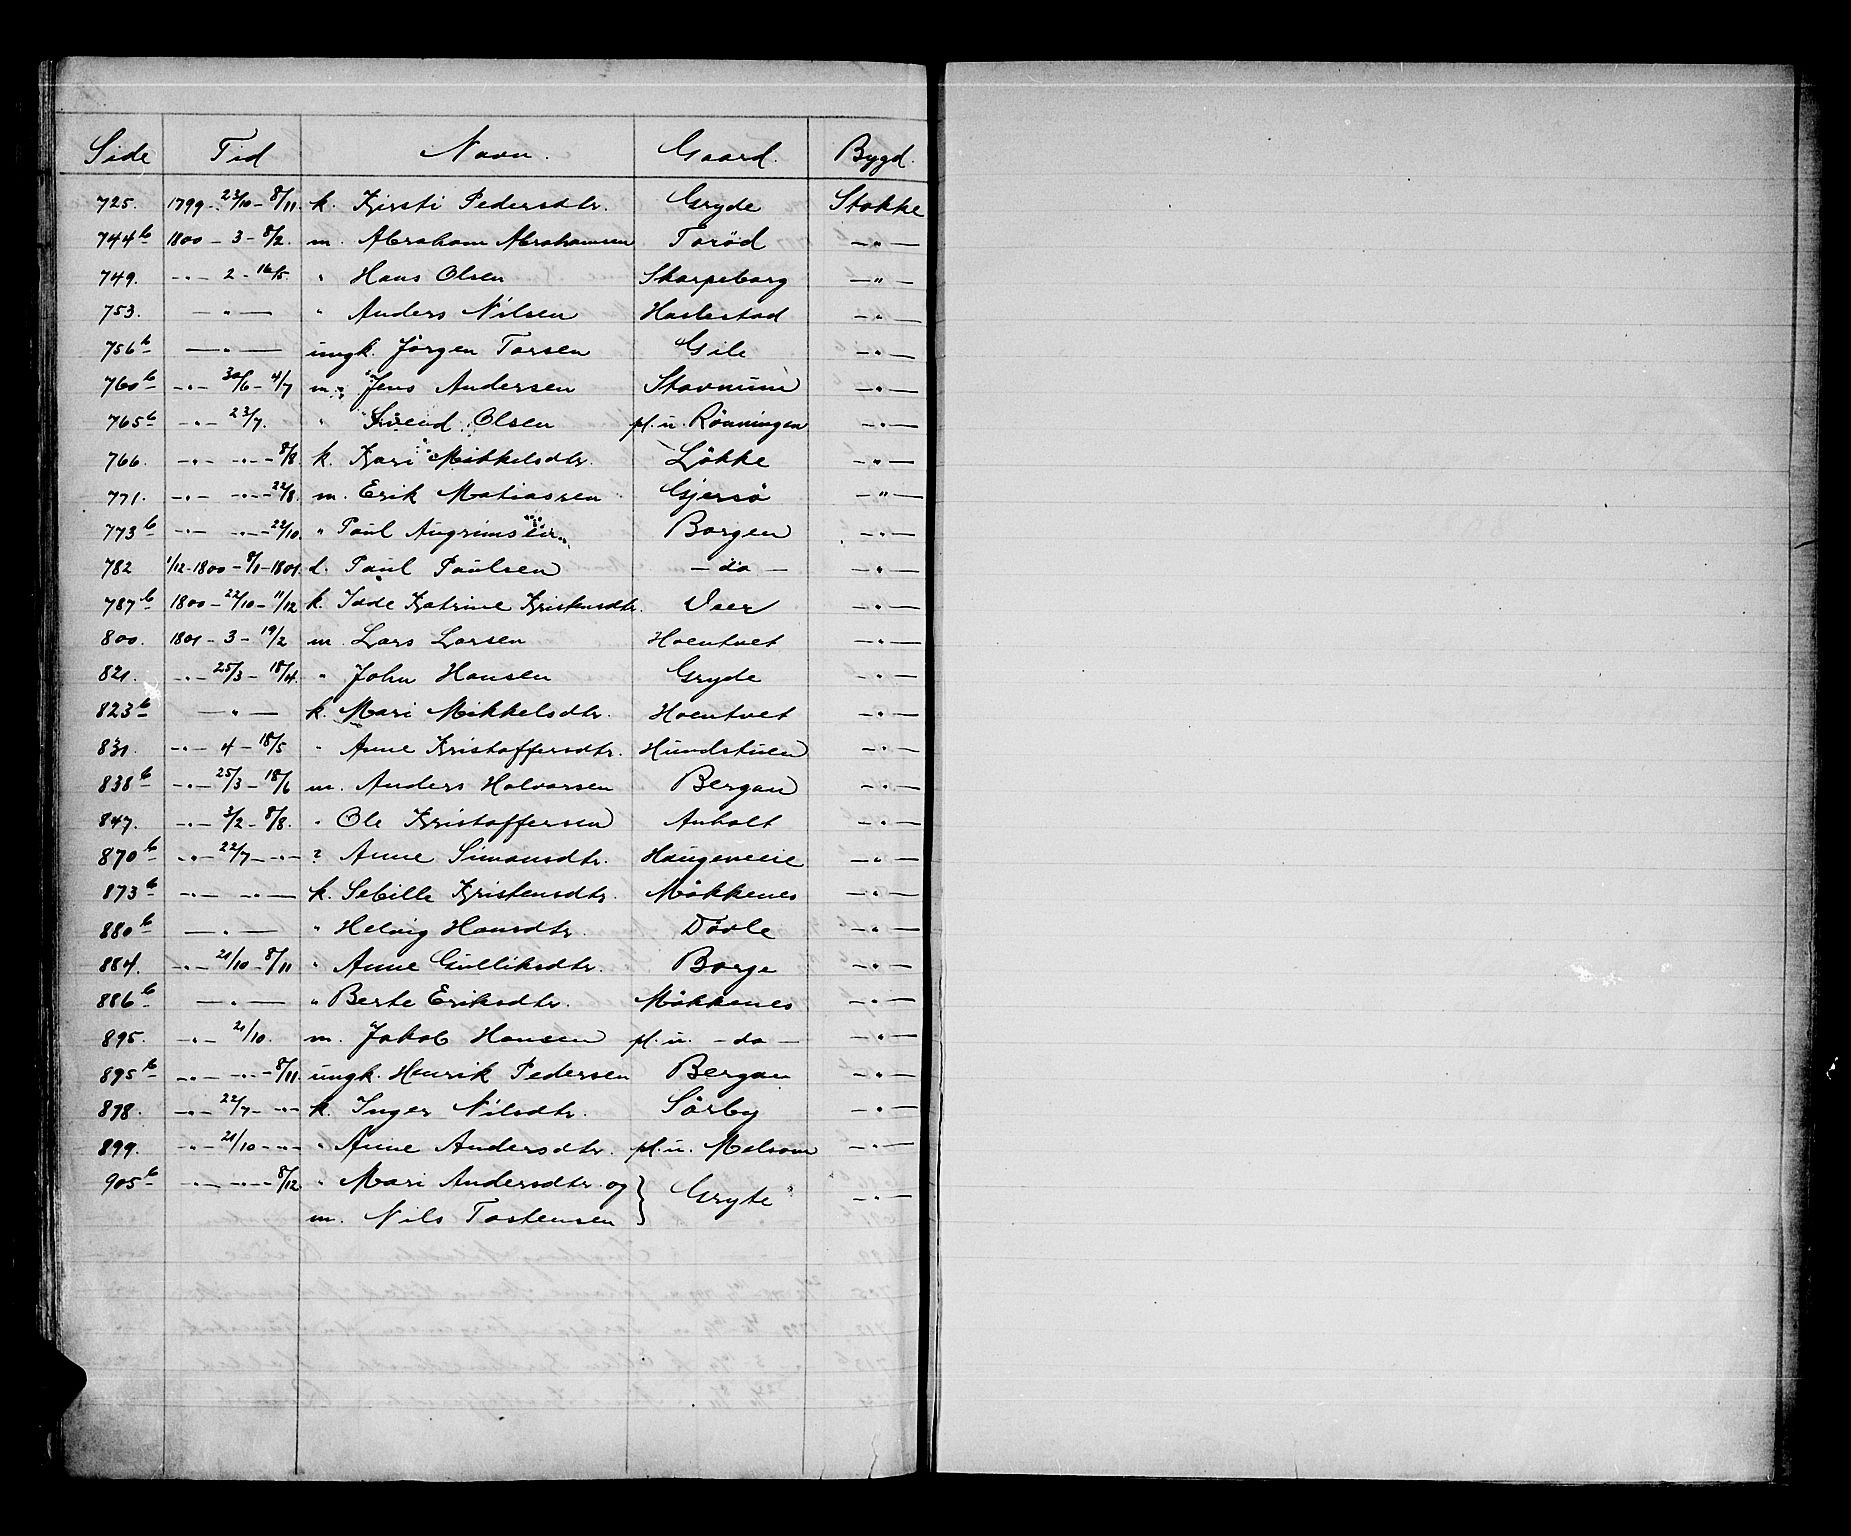 Side Tid Navn. Gaard. Bygd.
725. 1799 - 23/10 - 8/11. k. Kirsti Pedersdtr. Gryde Stokke
744b 1800 - 3 - 8/2. m. Abraham Abrahamsen Torød — " —
749. - " - 2 - 16/5. " Hans Olsen Skarpeborg — " —
753. — " — " Anders Nilsen Haslestad — " —
756b — " — ungk. Jörgen Torsen Gile — " —
760b - " - 30/6 - 4/7 m. Jens Andersen Stavnum — " —
765b - " - 23/7. " Svend Olsen pl. u. Rönningen — " —
766. - " - - " - 8/8. k. Kari Mikkelsdtr. Lökke — " —
771. - " - - " - 22/8. m. Erik Matiassen Gjersö — " —
773b - " - - " - 22/10. " Paul Angrimsen Borgen — " —
782 1/12 - 1800 - 8/1 - 1801. d. Paul Paulsen — do — — " —
787b 1800 - 22/10 - 11/12 k. Katrine Kristensdtr. Veer — " —
800. 1801 - 3 - 19/2 m. Lars Larsen Hoentvet — " —
821. - " - 25/3 - 18/4. " John Hansen Gryde — " —
823b — " — k. Mari Mikkelsdtr. Hoentvet — " —
831. - " - 4 - 18/5 " Anne Kristoffersdtr. Hundstuen — " —
838b - " - 25/3 - 18/6 m. Anders Halvorsen Bergan — " —
847. - " - 3/2 - 8/8. " Ole Kristoffersen Anholt — " —
870b - " - 22/7 - " - ? Anne Simonsdtr. Haugeneie — " —
873b - " - - " — k. Sebille Kristensdtr. Mökkenes — " —
880b — " — " Helvig Hansdtr. Dövle — " —
884. - " - 21/10 - 8/11 " Anne Gulliksdtr. Borge — " —
886b — " — " Berte Eriksdtr. Mökkenes — " —
895. - " - 21/10. m. Jakob Hansen pl. u. — do — — " —
895b - " - - " - 8/11. ungk. Henrik Pedersen Bergan — " —
898. - " - 22/7 - " - k. Inger Nilsdtr. Sörby — " —
899. - " - 21/10 - " - " Anne Andersdtr. pl. u. Melsom — " —
905b - " - - " - 8/12 " Mari Andersdtr. og } Gryte — " —
m. Nils Tostensen